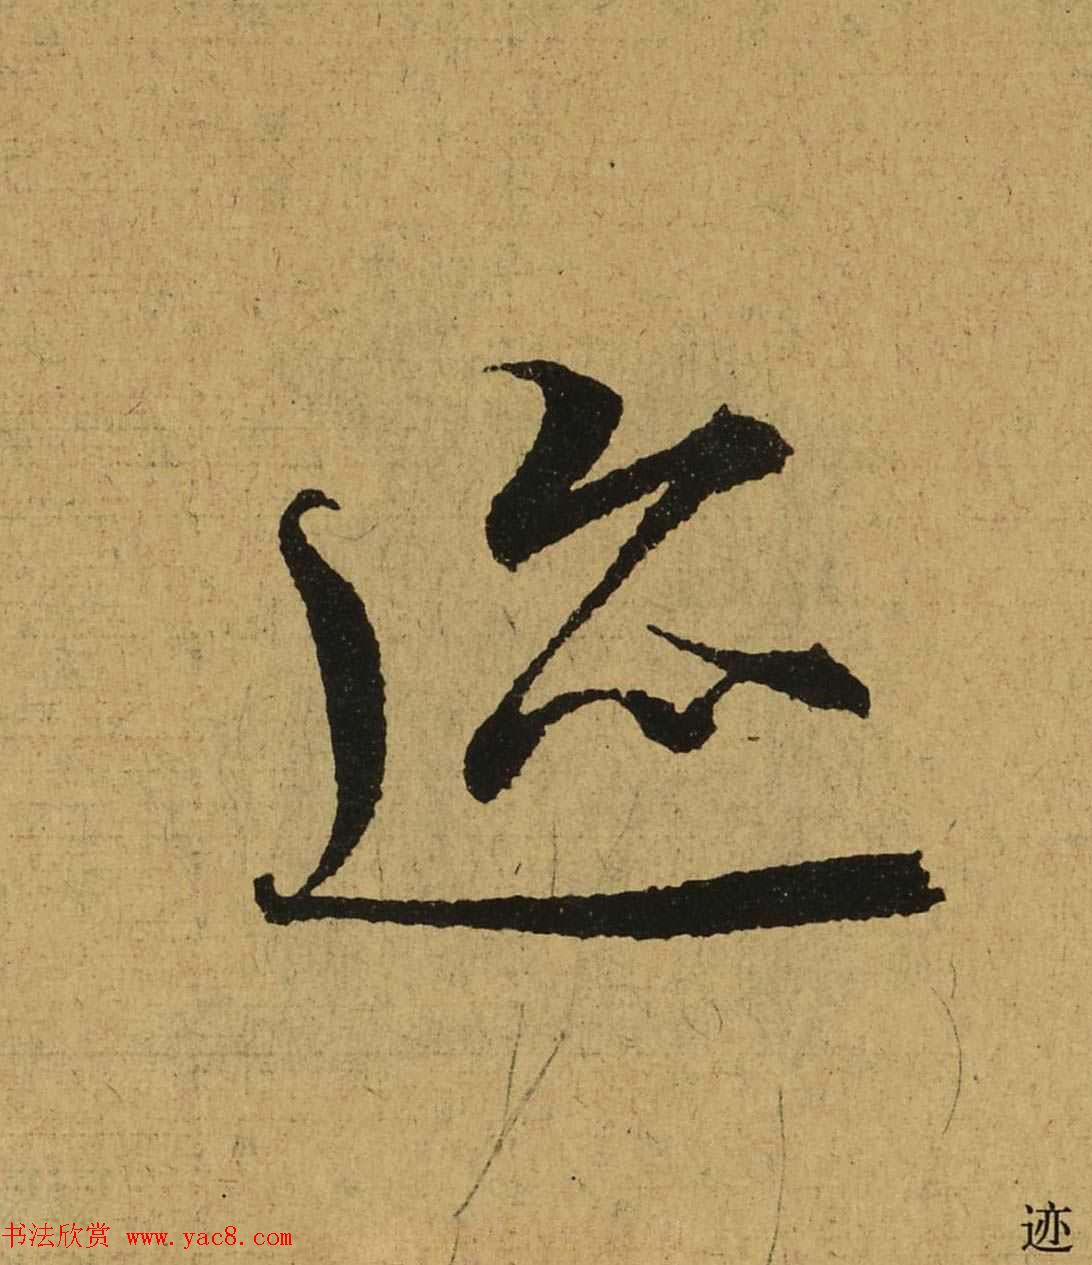 迹
书法欣赏 www.yac8.com
迹